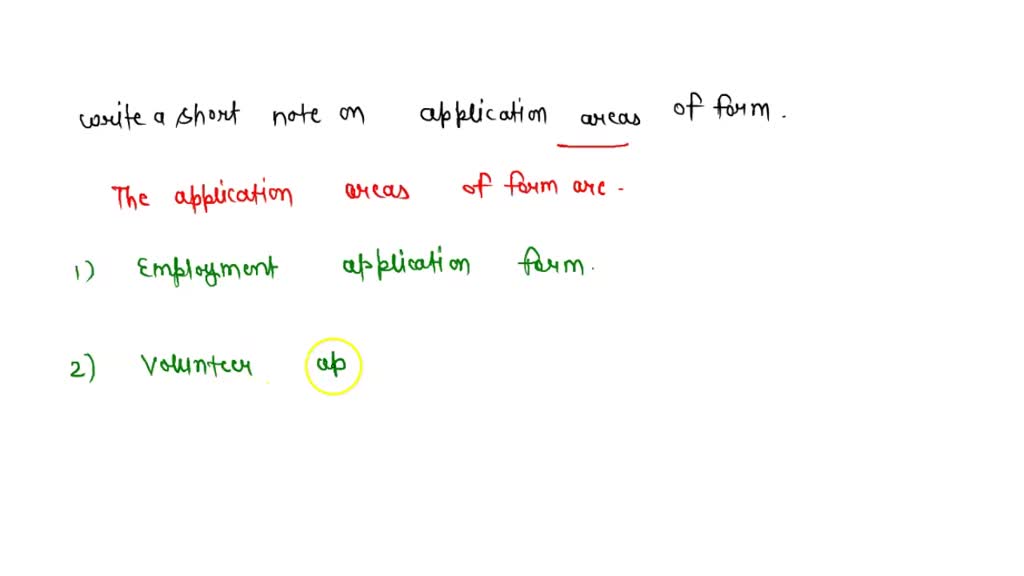 write a short note on application areas of form.
The application areas of form are -
1) Employment application form.
2) Volunteer ap